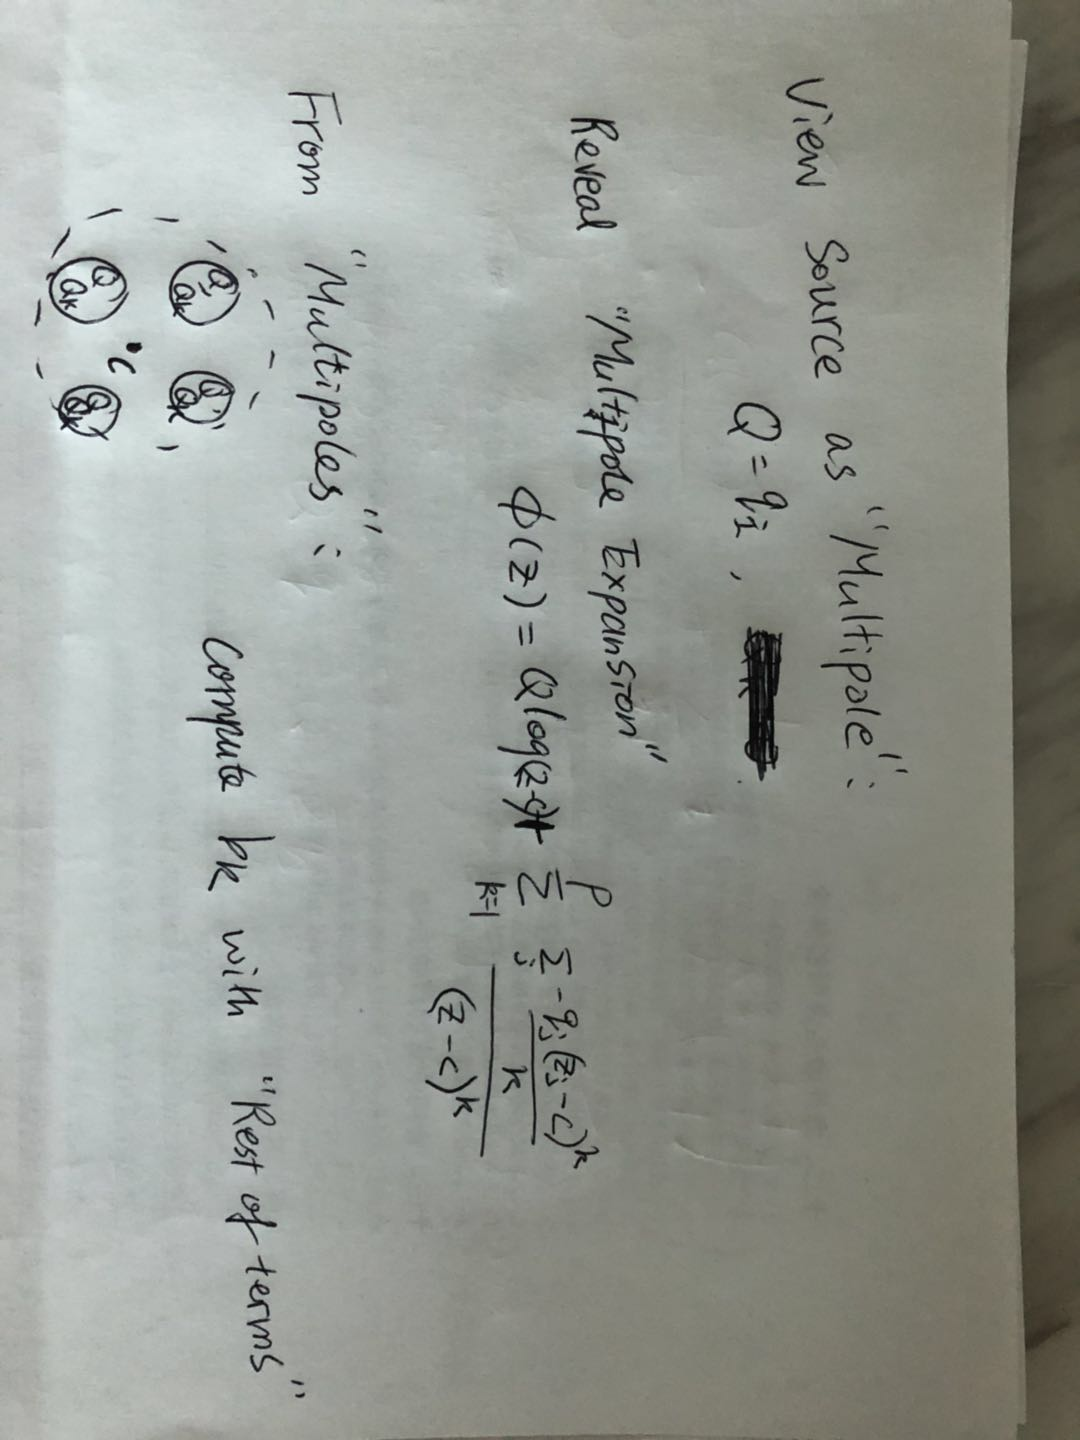 View Source as "Multipole":
Q = qi ,
Reveal "Multipole Expansion"
ϕ(z) = Q log(z-c) + Σ_{k=1}^{p} (Σ_j -qj(zj-c)^k / k) / (z-c)^k
From "Multipoles":
Q ak Q ak
C
Q ak Q ak
Compute bk with "Rest of terms"